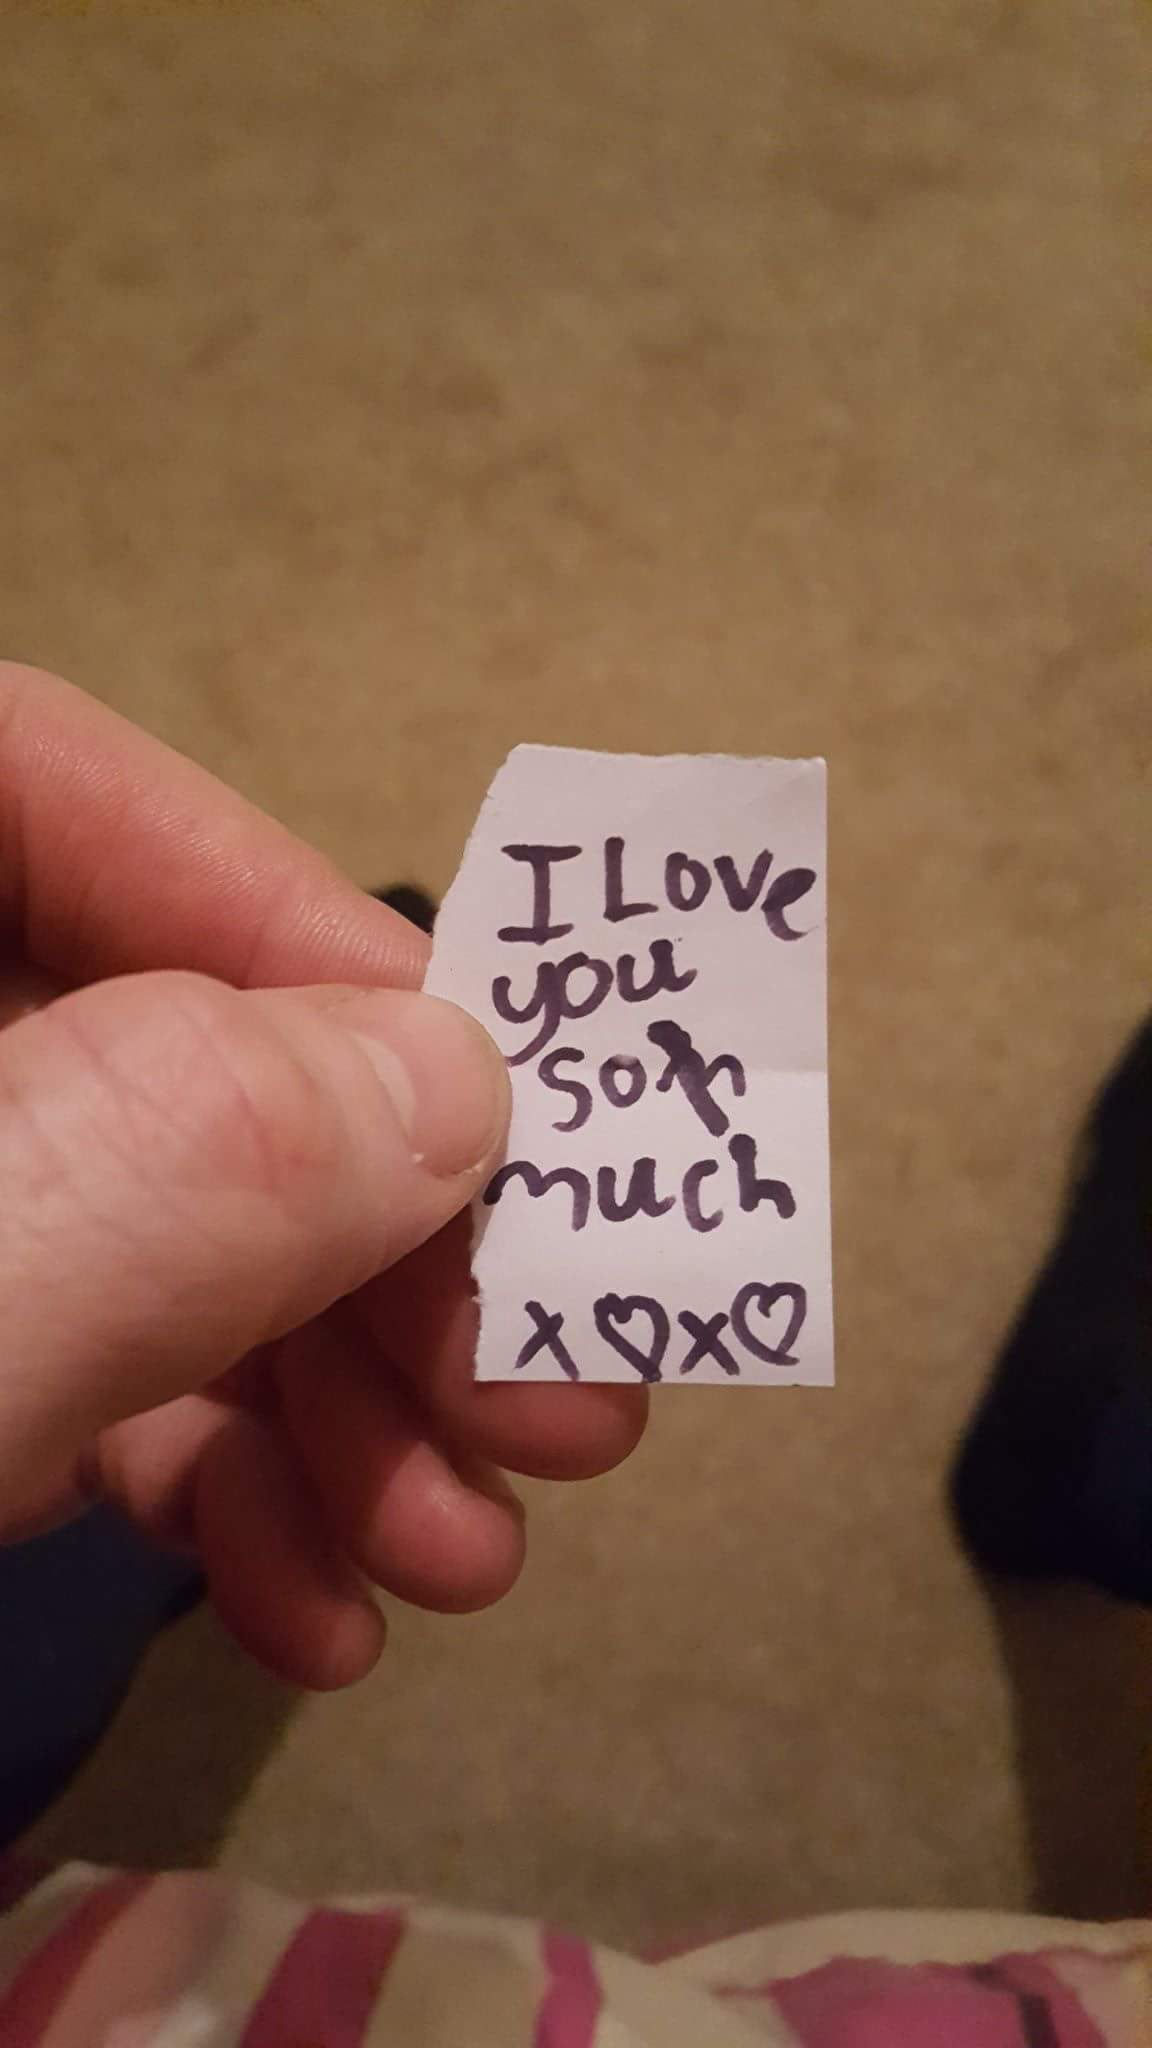 I Love
you
so
much
x ♡ x ♡